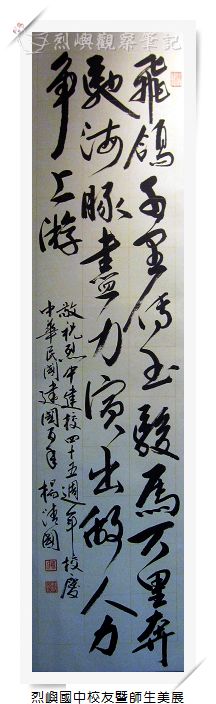 烈嶼觀察筆記
飛鴿千里傳书駿馬万里奔
馳海豚盡力演出做人力
争上游
敬祝烈中建校四十五週年校慶
中華民國建國百年 楊清國
烈嶼國中校友暨師生美展